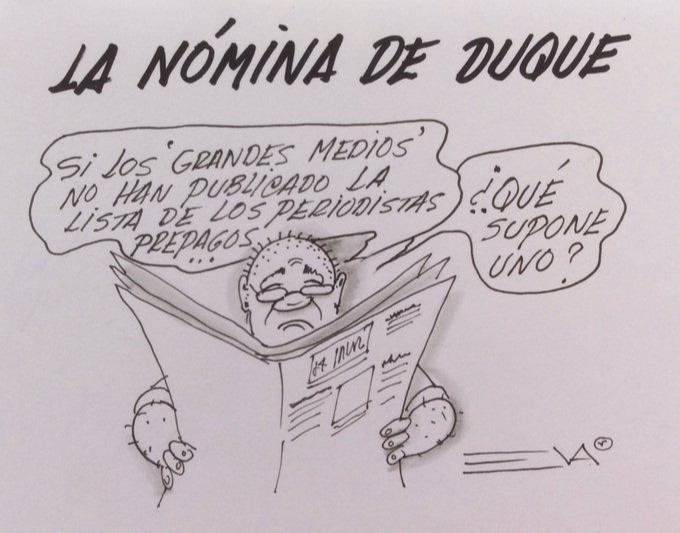 LA NÓMINA DE DUQUE
SI LOS 'GRANDES MEDIOS'
NO HAN PUBLICADO LA
LISTA DE LOS PERIODISTAS
PREPAGOS,
...
¿QUÉ
SUPONE
UNO?